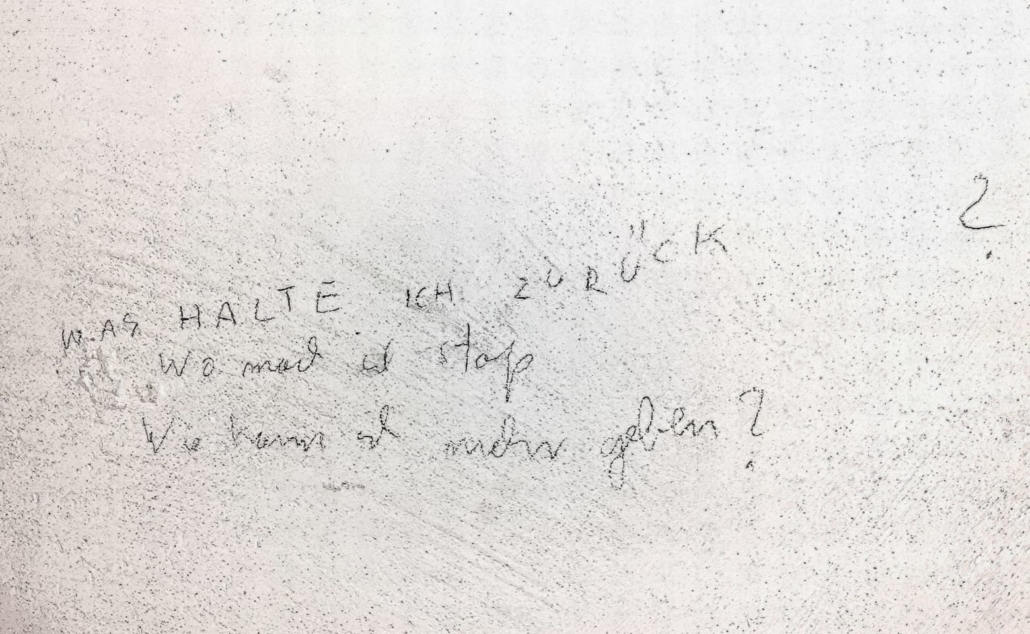 WAS HALTE ICH ZURÜCK ?
Wo mach ich stop
Wie kann ich mehr geben?